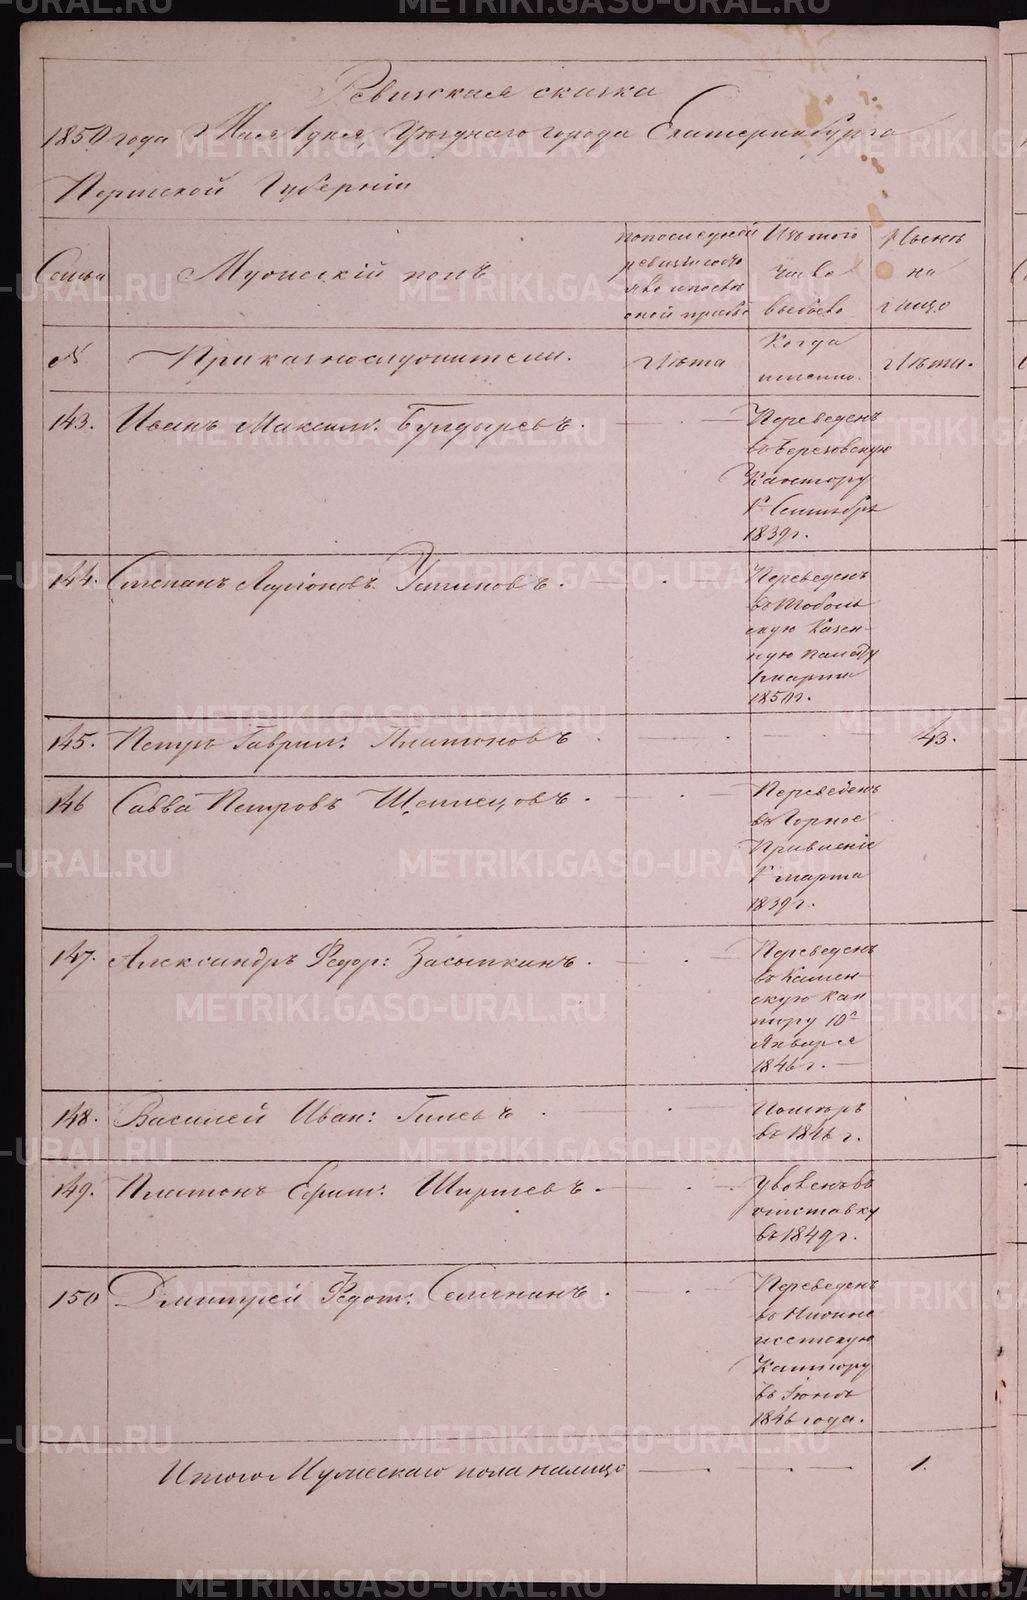 Ревизская сказка
1850 года Мая 1 дня, Уезднаго города Екатеринбурга
Пермской Губерніи
Семьи
Мужескій полъ
по последней
ревизіи
Изъ того
числа
выбыло
Нынѣ
на
лицо
№
Приказнослужители.
Лѣта
Когда
именно.
Лѣта.
143. Иванъ Максим: Булдыревъ.
Переведенъ
въ Березовскую
Кантору
1г Сентября
1839 г.
144. Степанъ Ларіоновъ Устиновъ.
Переведенъ
въ Тоболь
скую Казен-
ную палату
1 марта
1850 г.
145. Петръ Гаврил: Платоновъ.
43.
146 Савва Петровъ
Переведенъ
въ Горное
Правленіе
1г марта
1839 г.
147. Александръ Федор: Засыпкинъ.
Переведенъ
въ Камен-
скую кан
тору 10г
Января
1846 г.
148. Василей Иван: Гилевъ.
Помѣръ
въ 1846 г.
149. Платонъ Ефим: Ширяевъ.
Уволенъ въ
отставку
въ 1849 г.
150 Дмитрей Федот:
Переведенъ
въ Нижне
исетскую
Кантору
въ Іюнѣ
1846 года.
Итого Мужескаго пола налицо
1.
METRIKI.GASO-URAL.RU